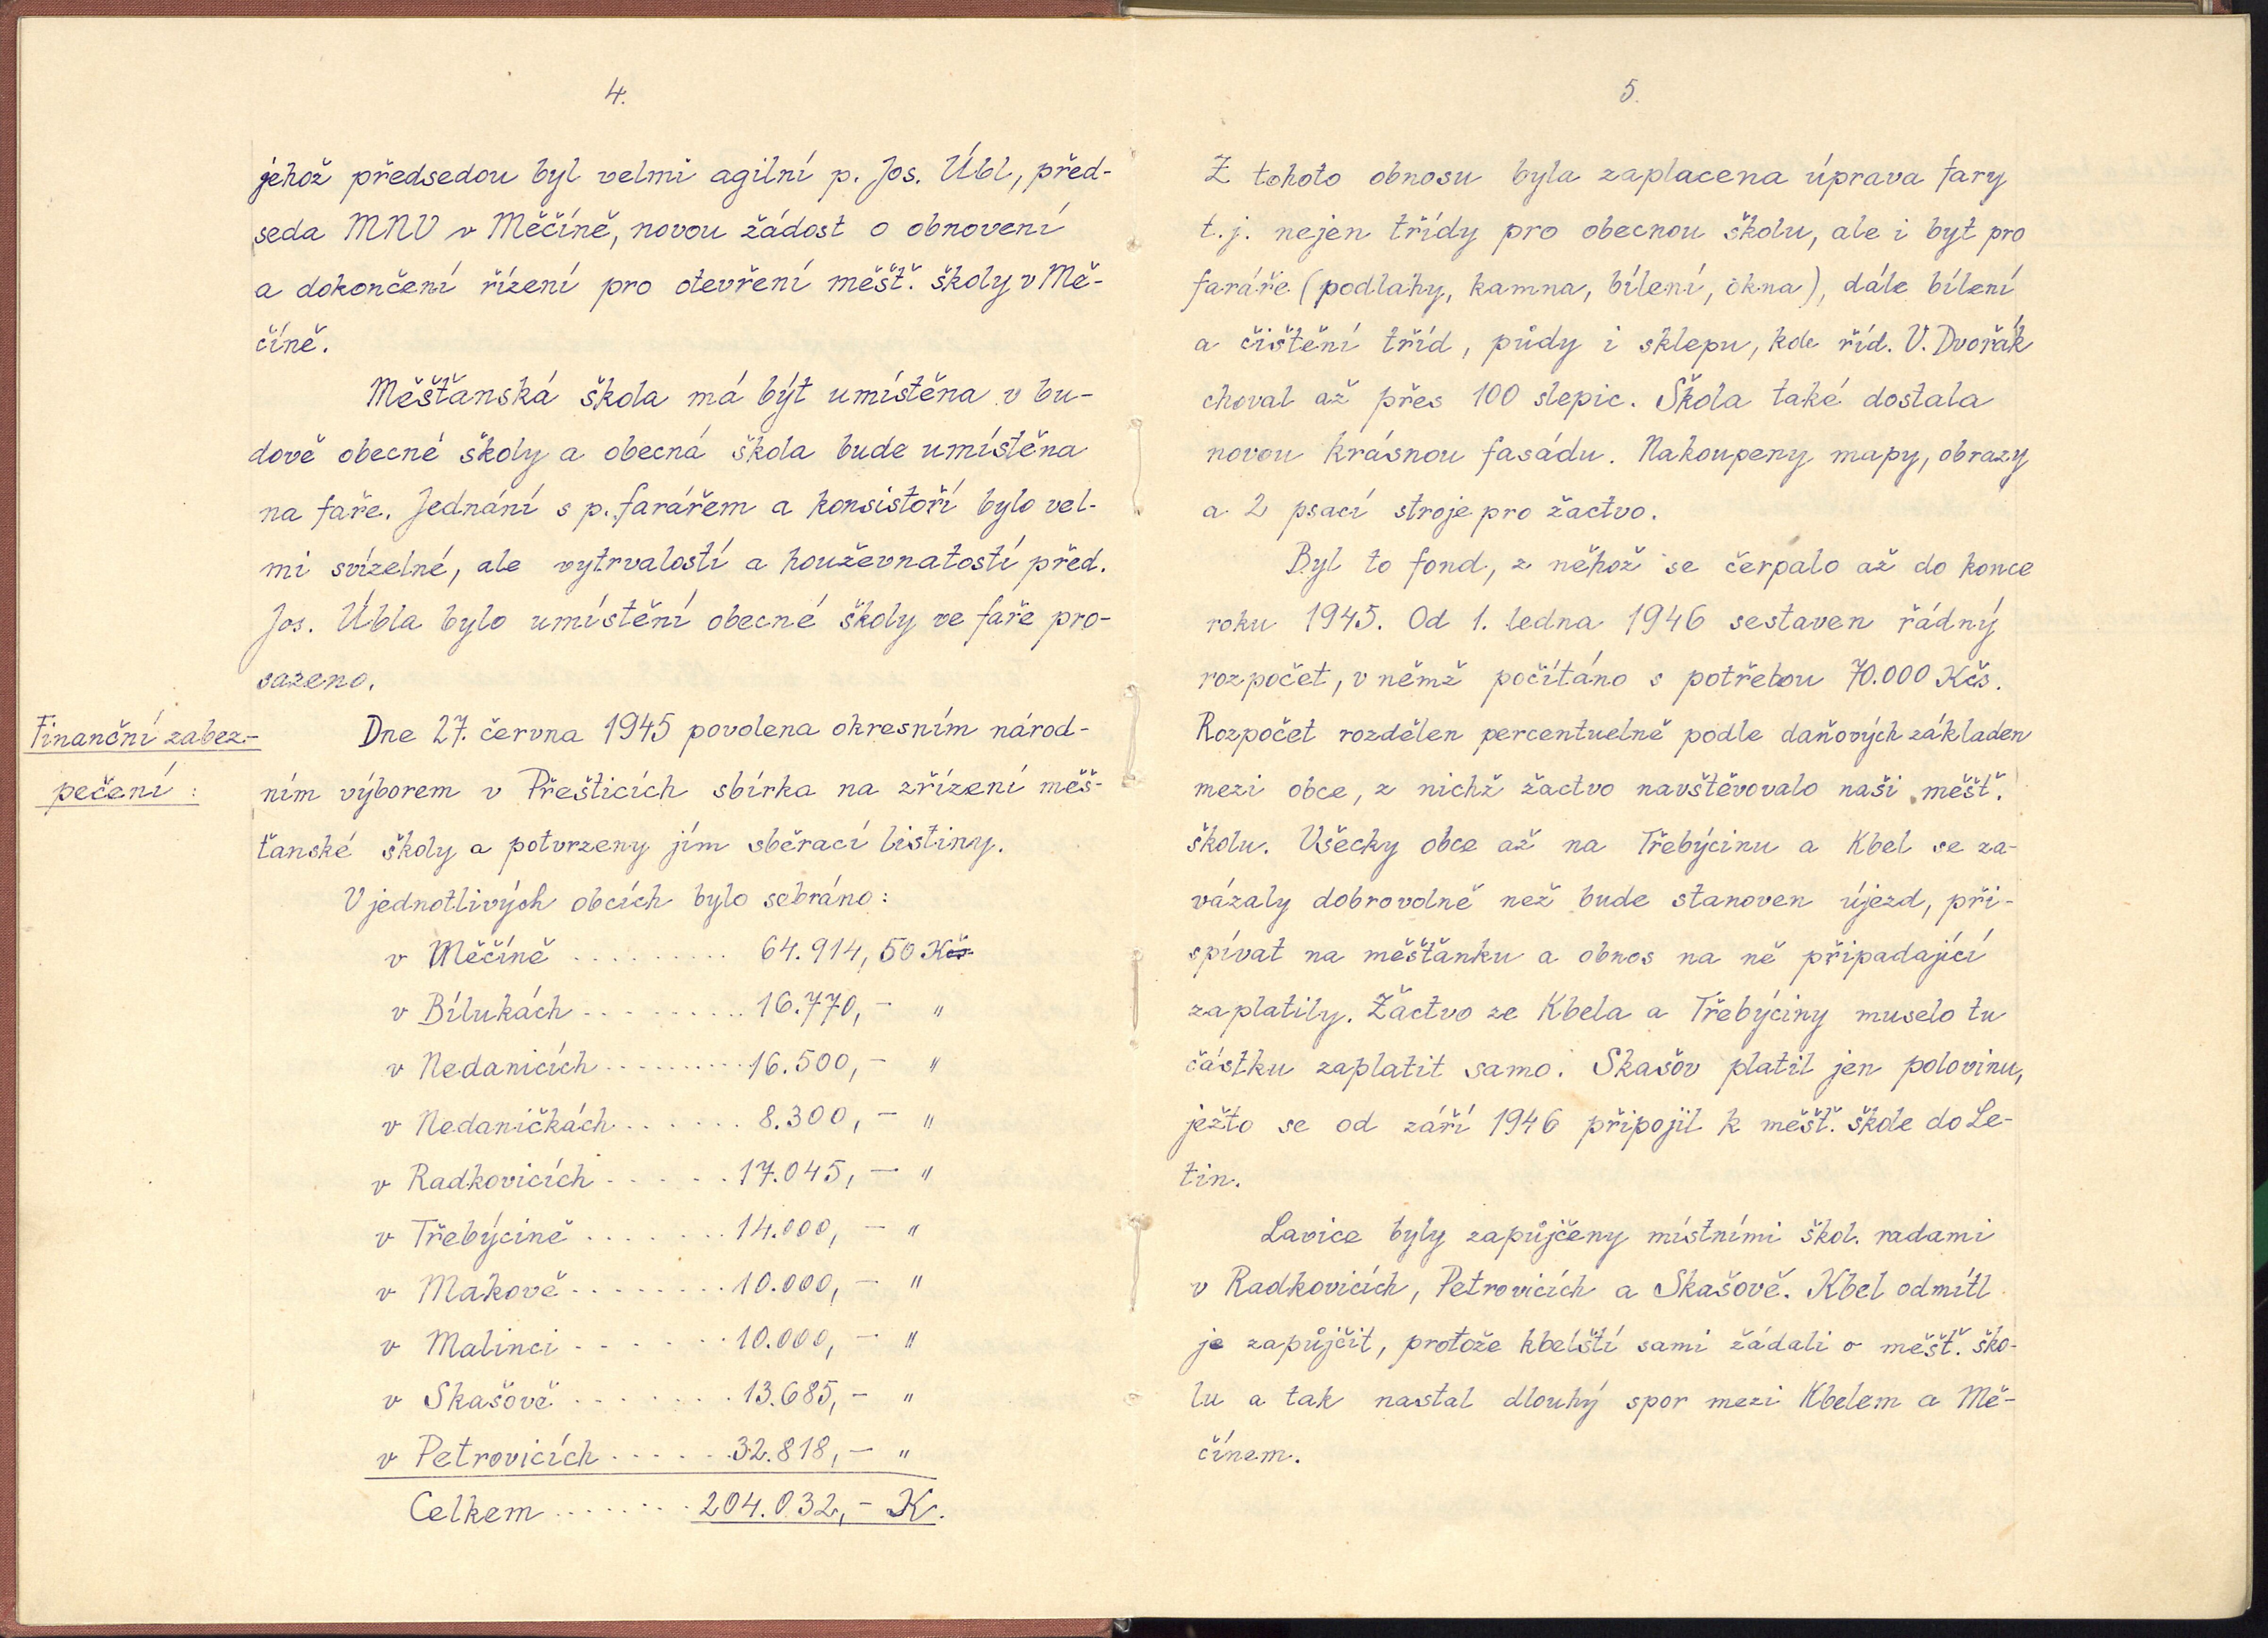 4.
jehož předsedou byl velmi agilní p. Jos. Úbl, před-
seda MNV v Měčíně, novou žádost o obnovení
a dokončení řízení pro otevření měšť. školy v Mě-
číně.
Měšťanská škola má být umístěna v bu-
dově obecné školy a obecná škola bude umístěna
na faře. Jednání s p. farářem a konsistoří bylo vel-
mi svízelné, ale vytrvalostí a houževnatostí před.
Jos. Úbla bylo umístění obecné školy ve faře pro-
sazeno.
Finanční zabez-
pečení:
Dne 27. června 1945 povolena okresním národ-
ním výborem v Přešticích sbírka na zřízení měš-
ťanské školy a potvrzeny jím sběrací listiny.
V jednotlivých obcích bylo sebráno:
v Měčíně ......... 64.914,50 Kčs
v Bílukách ......... 16.770,- "
v Nedanicích .......... 16.500,- "
v Nedaničkách ....... 8.300,- "
v Radkovicích ..... 17.045,- "
v Třebýcině ....... 14.000,- "
v Makově ........ 10.000,- "
v Malinci ....... 10.000,- "
v Skašově ....... 13.685,- "
v Petrovicích ...... 32.818,- "
Celkem ....... 204.032,- K.
5.
Z tohoto obnosu byla zaplacena úprava fary
t.j. nejen třídy pro obecnou školu, ale i byt pro
faráře (podlahy, kamna, bílení, okna), dále bílení
a čištění tříd, půdy i sklepu, kde říd. V. Dvořák
choval až přes 100 slepic. Škola také dostala
novou krásnou fasádu. Nakoupeny mapy, obrazy
a 2 psací stroje pro žactvo.
Byl to fond, z něhož se čerpalo až do konce
roku 1945. Od 1. ledna 1946 sestaven řádný
rozpočet, v němž počítáno s potřebou 70.000 Kčs.
Rozpočet rozdělen percentuelně podle daňových základen
mezi obce, z nichž žactvo navštěvovalo naši měšť.
školu. Všecky obce až na Třebýcinu a Kbel se za-
vázaly dobrovolně než bude stanoven újezd, při-
spívat na měšťanku a obnos na ně připadající
zaplatily. Žactvo ze Kbela a Třebýciny muselo tu
částku zaplatit samo. Skašov platil jen polovinu,
ježto se od září 1946 připojil k měšť. škole do Le-
tin.
Lavice byly zapůjčeny místními škol. radami
v Radkovicích, Petrovicích a Skašově. Kbel odmítl
je zapůjčit, protože kbelští sami žádali o měšť. ško-
lu a tak nastal dlouhý spor mezi Kbelem a Mě-
čínem.